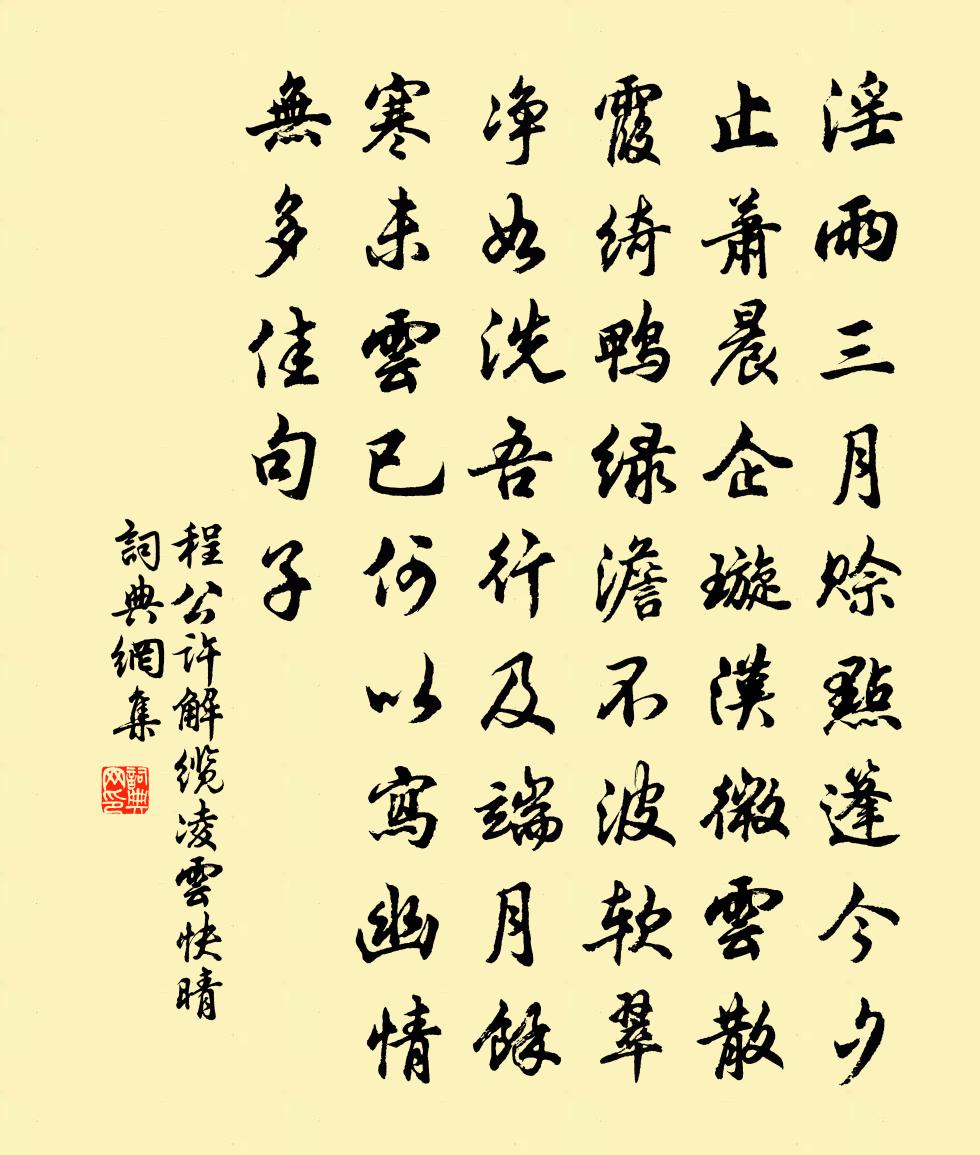 淫雨三月賒點蓬今夕
止蕭晨企璇漢微雲散
霞綺鴨绿澹不波软翠
净如洗吾行及端月餘
寒未雲已何以寫幽情
無多佳句子
程公许解缆凌雲快晴
詞典網集
詞典网印